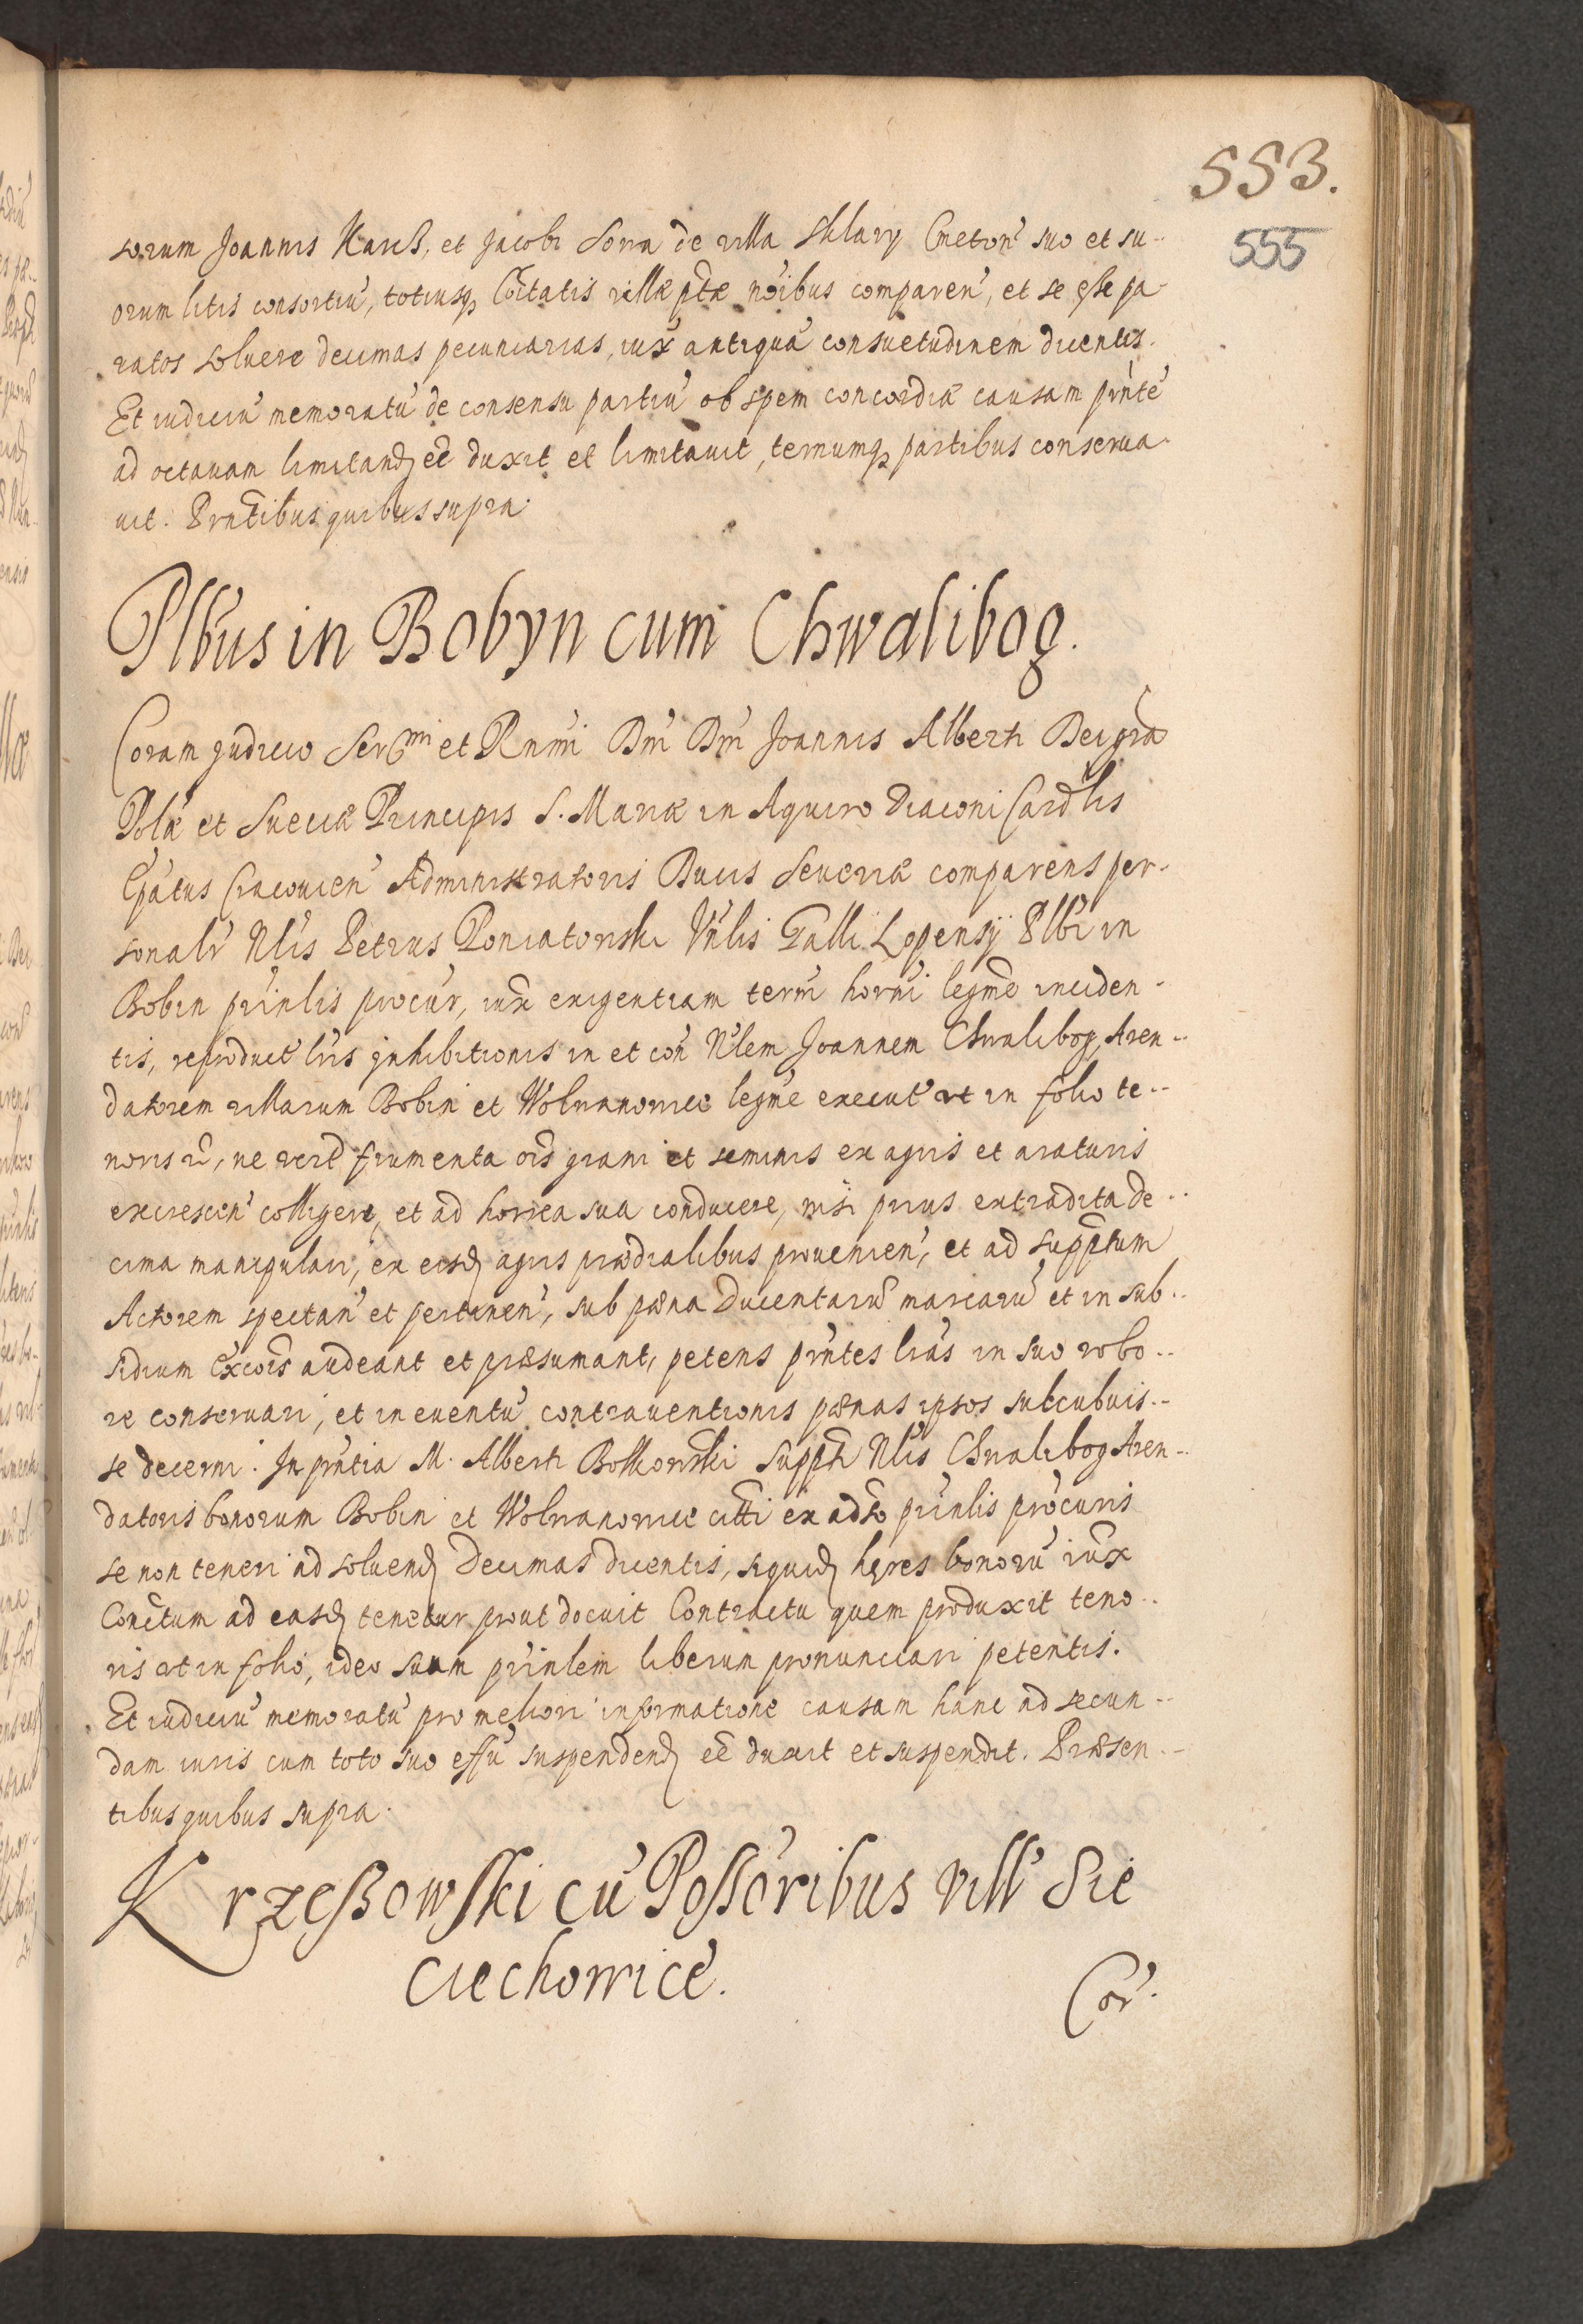 553.
555
sorum Joannis Karcß, et Jacobi Sowa de villa Sklary Cmeton' suo et su-
orum litis consortiu', totiusq; Cõitatis villæ ptæ nõibus comparen', et se esse pa-
ratos soluere decimas pecuniarias, iux antiqua' consuetudinem dicentis.
Et iudiciu' memoratu' de consensu partiu' ob spem concordiæ causam pn'te'
ad octauam limitand; eẽ duxit et limitauit, ternumq; partibus conserua-
uit. Prntibus quibus supra.
Plbus in Bobyn cum Chwalibog.
Coram Judicio Ser^mi et Rnmi Dni Dni Joannis Alberti Dei gra
Polæ et Sueciæ Principis S. Mariæ in Aquiro Diaconi Cardlis
Epatus Cracouien' Administratoris Ducis Seueriæ comparens per-
sonalr Nlis Petrus Poniatowski Vnlis Galli Lopensij Plbi in
Bobin prinlis procur, iux exigentiam term' horni legme inciden-
tis, reproduct' lris Inhibitionis in et con' N'lem Joannem Chwalibog Aren-
datorem villarum Bobin et Wolwanowice legme execut' vt in folio te-
noris ei', ne vero frumenta ois grani et seminis ex agris et araturis
excrescen' colligere, et ad horrea sua conducere, nisi prius extradita de-
cima manipulari, ex eisd; agris prædialibus prouenien', et ad supptum
Actorem spectan' et pertinen', sub pæna Ducentaru' marcaru' et in sub-
sidium Excois audeant et præsumant, petens pn'tes lras in suo robo-
re conseruari, et in euentu' contrauentionis pænas ipsos subcubuis-
se decerni. In pn'tia M. Alberti Borkowski supptti Nlis Chwalibog Aren-
datoris bonorum Bobin et Wolwanowice citti ex adso prinlis procuris
se non teneri ad soluend; Decimas dicentis, siquid; hæres bonoru' iux
Conctum ad easd; tenetur prout docuit Contractu quem produxit teno-
ris vt in folio, ideo suum prinlem liberum pronunciari petentis.
Et iudiciu' memoratu' pro meliori informatione causam hanc ad secun-
dam iuris cum toto suo effu' suspendend; eẽ duxit et suspendit. Præsen-
tibus quibus supra.
Krzeßowski cu' Possoribus vill' Sie
ciechowice.
Cor'.